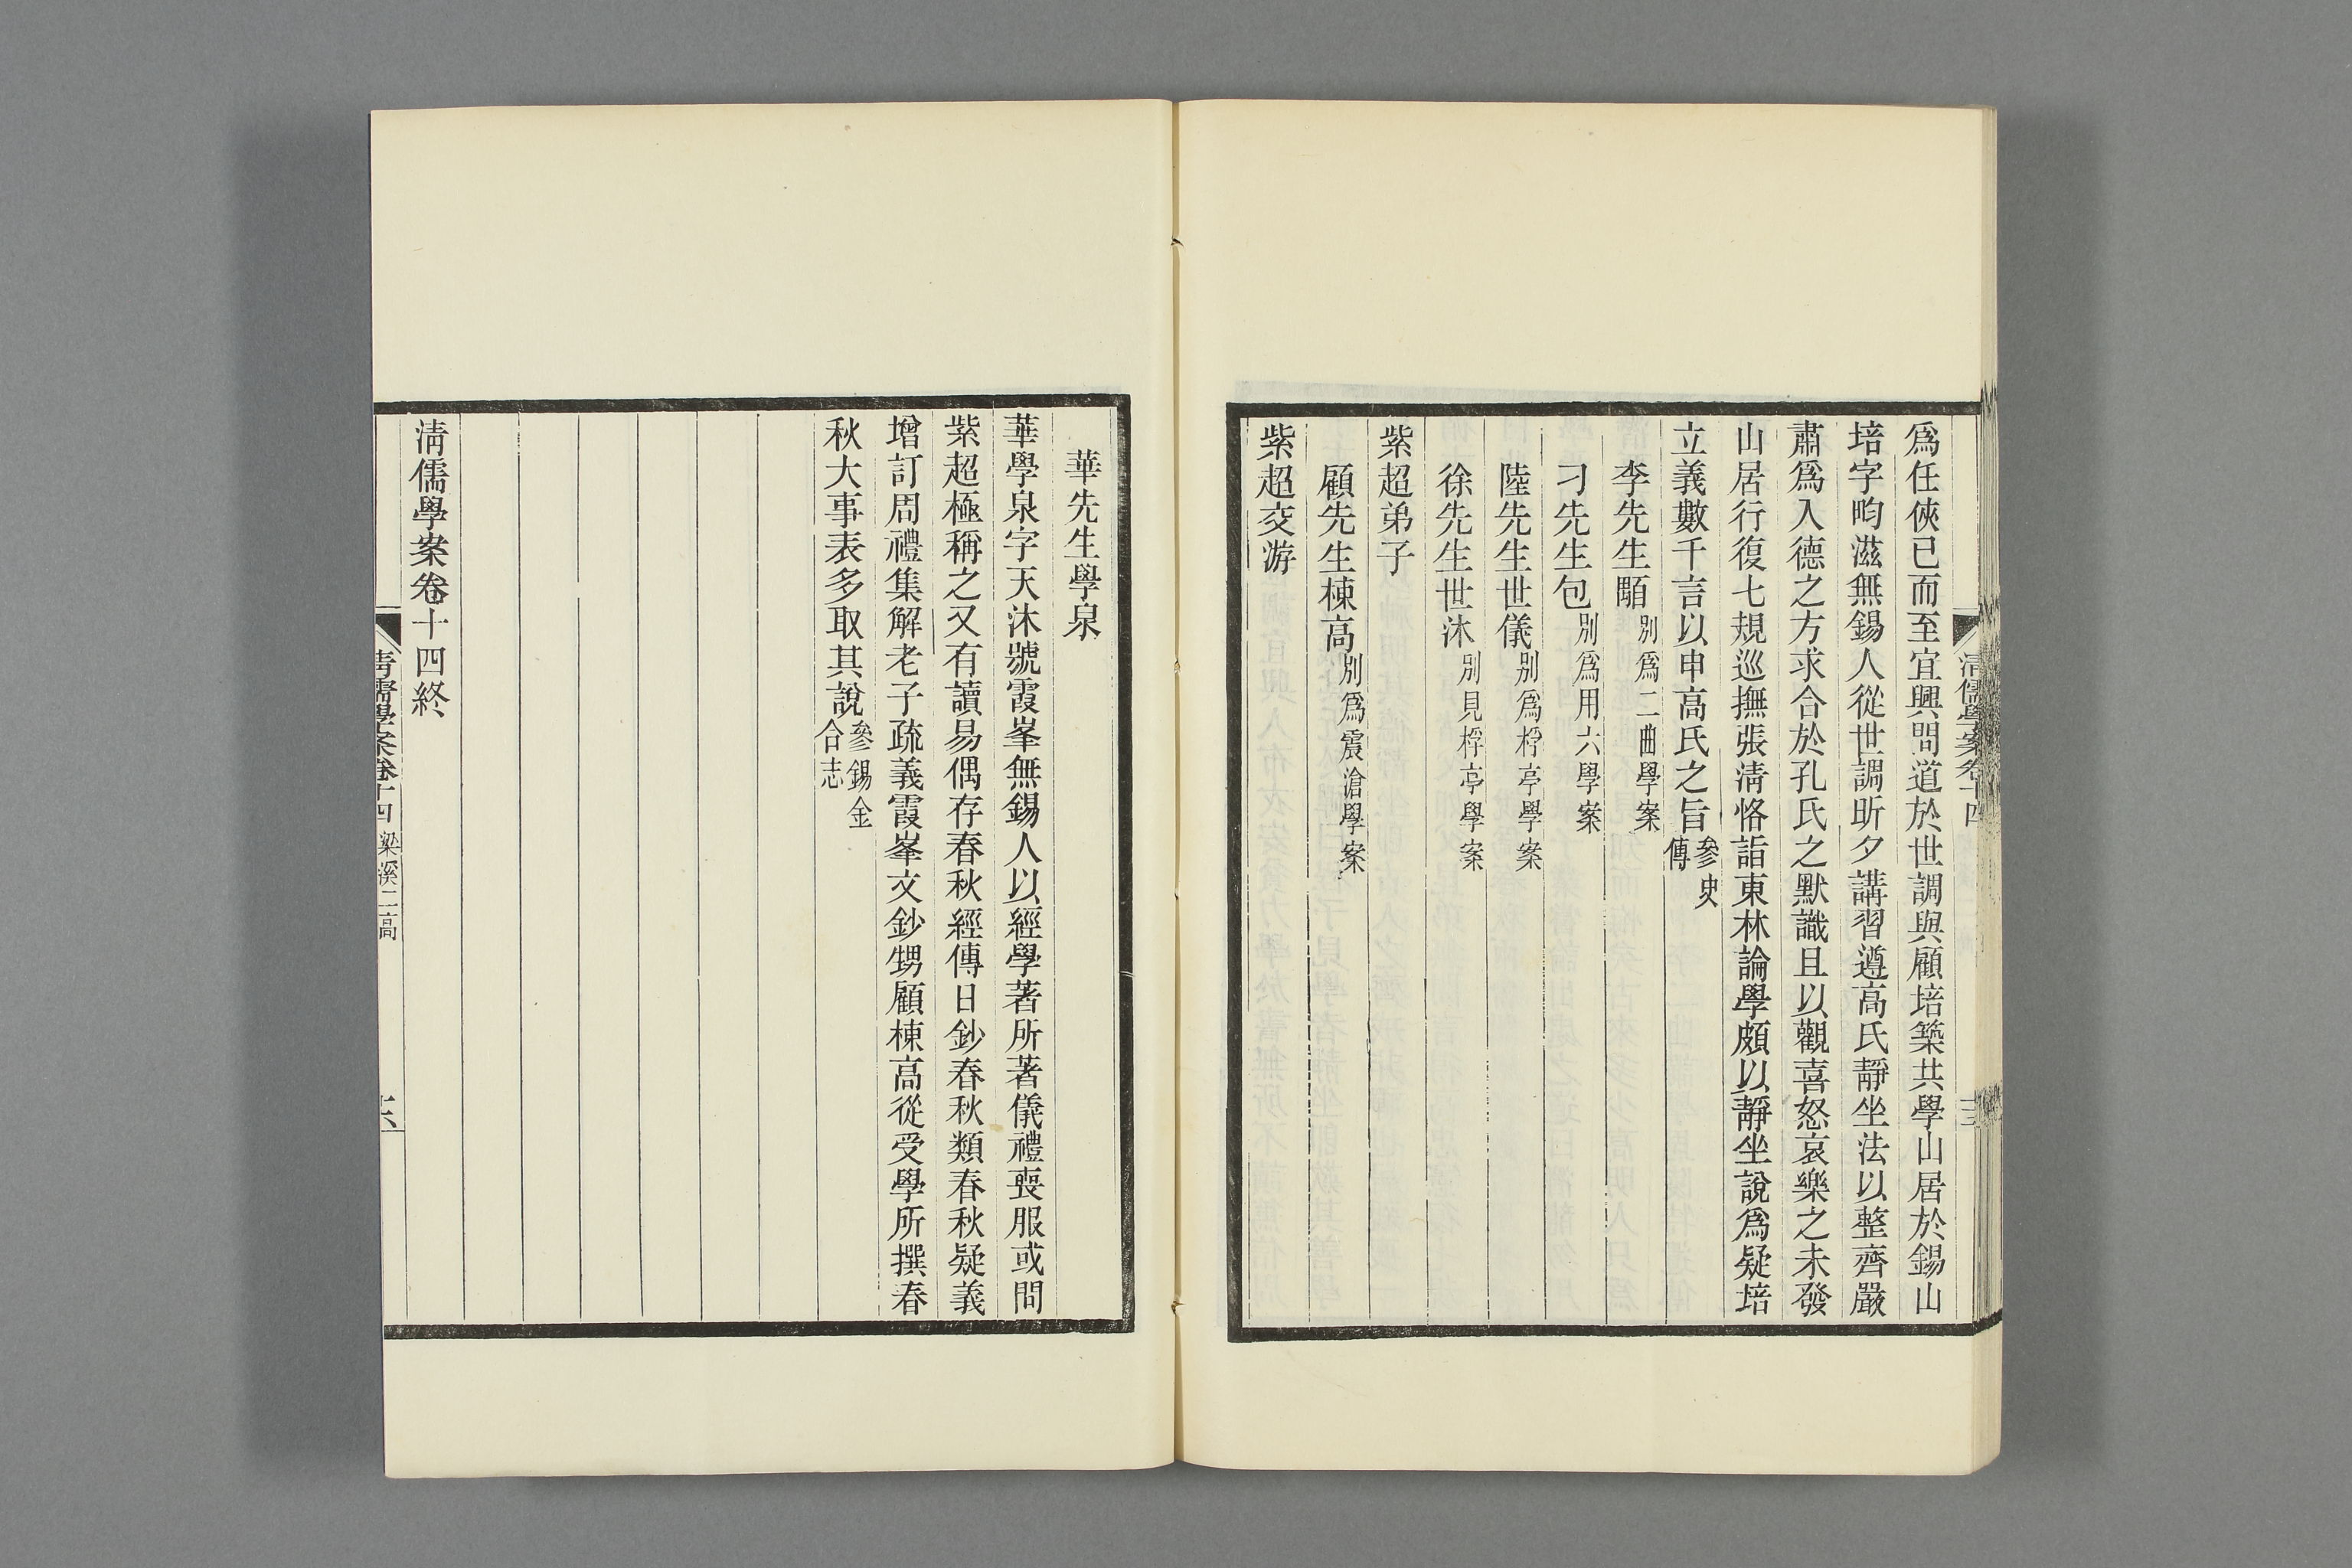 爲任俠已而至宜興問道於世調與顧培築共學山居於錫山
培字畇滋無錫人從世調昕夕講習遵高氏靜坐法以整齊嚴
肅爲入德之方求合於孔氏之默識且以觀喜怒哀樂之未發
山居行復七規巡撫張清恪詣東林論學頗以靜坐說爲疑培
立義數千言以申高氏之旨參史傳
李先生顒別爲二曲學案
刁先生包別爲用六學案
陸先生世儀別爲桴亭學案
徐先生世沐別見桴亭學案
紫超弟子
顧先生棟高別爲震滄學案
紫超交游
華先生學泉
華學泉字天沐號霞峯無錫人以經學著所著儀禮喪服或問
紫超極稱之又有讀易偶存春秋經傳日鈔春秋類春秋疑義
增訂周禮集解老子疏義霞峯文鈔甥顧棟高從受學所撰春
秋大事表多取其說參錫金合志
清儒學案卷十四終
清儒學案卷十四 梁溪二高